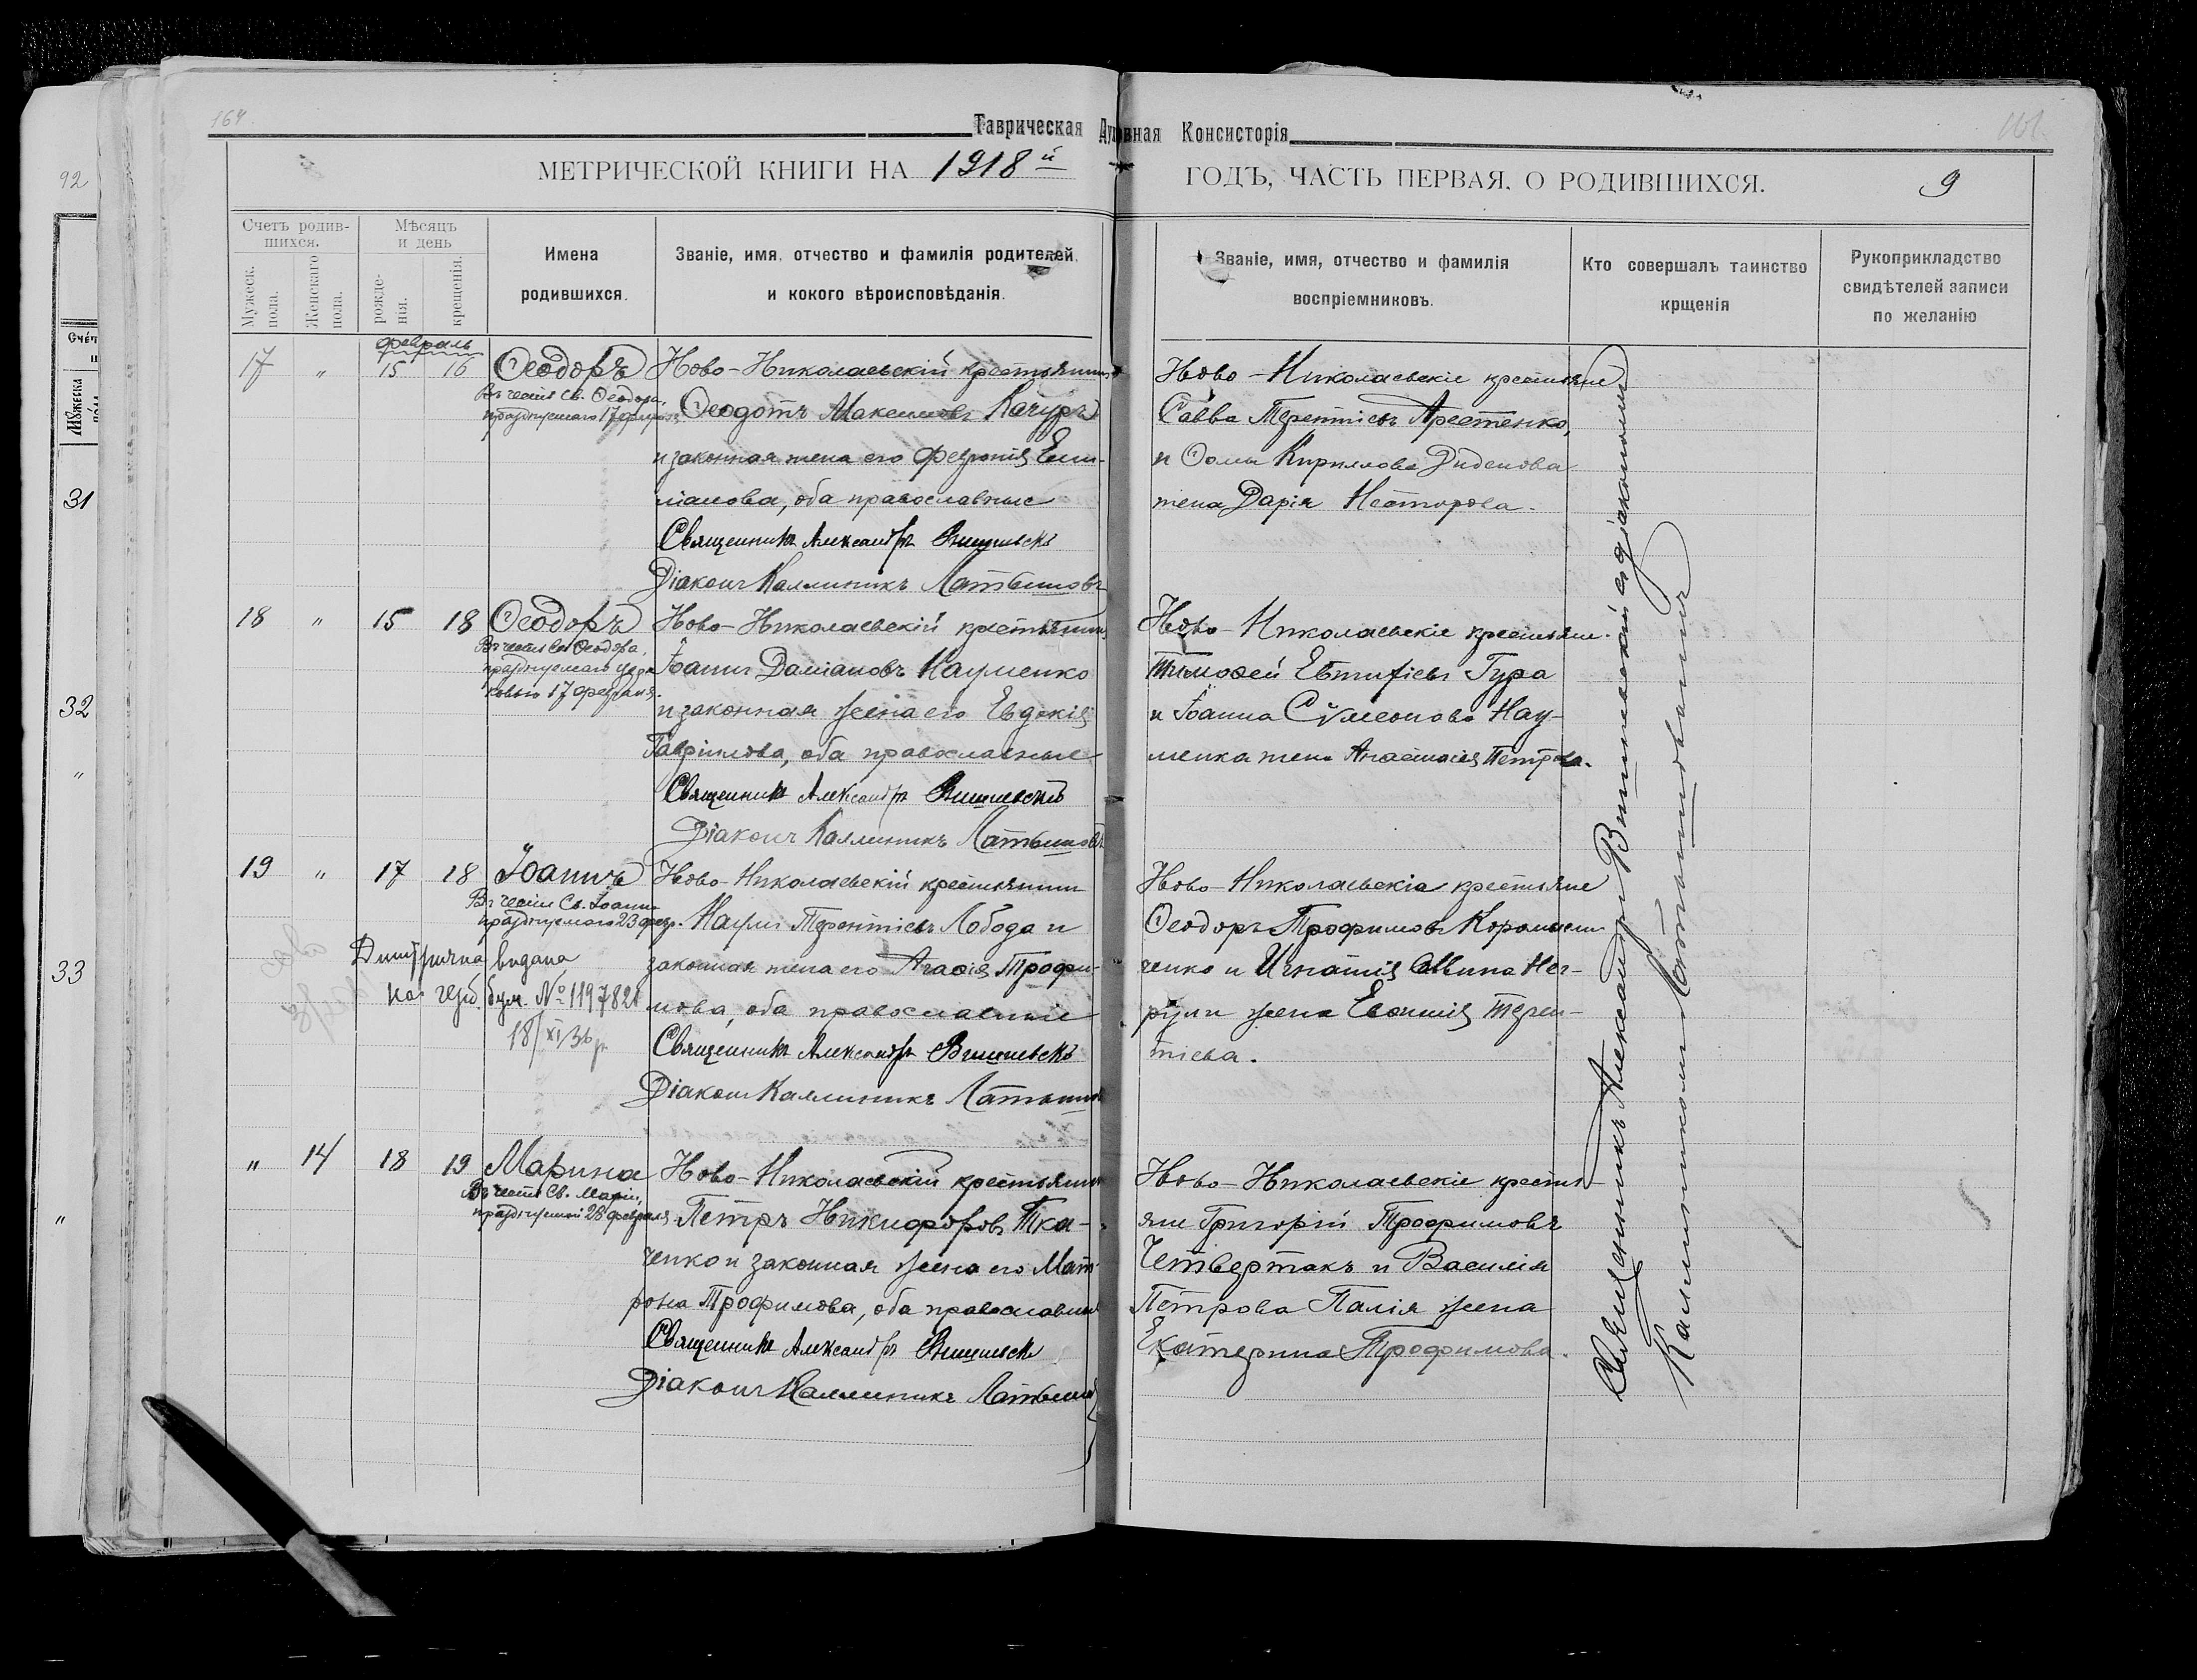 164.
161.
Таврическая Духовная Консисторія
МЕТРИЧЕСКОЙ КНИГИ НА 1918й ГОДЪ, ЧАСТЬ ПЕРВАЯ, О РОДИВШИХСЯ. 9
Счетъ родив-
шихся.
Мужеск. пола.
Женскаго пола.
Мѣсяцъ
и день
рожде-
нія.
крещенія.
Имена
родившихся.
Званіе, имя, отчество и фамилія родителей
и кокого вѣроисповѣданія.
Званіе, имя, отчество и фамилія
воспріемниковъ.
Кто совершалъ таинство
крщенія
Рукоприкладство
свидѣтелей записи
по желанію
февраль
17 " 15 16 Ѳеодоръ
Въ честь Св. Ѳеодора,
празднуемаго 17 февраля
Ново-Николаевскій крестьянинъ
Ѳеодотъ Максимовъ Качуръ
и законная жена его Феѵронія Еми-
ліанова, оба православные
Священникъ Александръ Вишневскі
Діаконъ Каллиникъ Латышовъ
Ново-Николаевскіе крестьяне
Савва Терентіевъ Арестенко,
и Ѳомы Кириллова Диденова
жена Дарія Несторова.
18 " 15 18 Ѳеодоръ
Въ честь Св. Ѳеодора,
празднуемаго Церк
ковью 17 февраля.
Ново-Николаевскій крестьянинъ
Іоаннъ Даміановъ Науменко
и законная жена его Евдокія
Гавріилова, оба православные
Священникъ Александръ Вишневскій
Діаконъ Каллиникъ Латышовъ
Ново-Николаевскіе крестьяне
Тимоѳей Евтихіевъ Гура
и Іоанна Сѵмеонова Нау-
менка жена Анастасія Петрова.
19 " 17 18 Іоаннъ
Въ честь Св. Іоанна
празднуемаго 23 февр.
Дмитрична видана
на герб. бум. № 1197821
18/XI 3
Ново-Николаевскій крестьянинъ
Наумъ Терентіевъ Лобода и
законная жена его Агаѳія Трофи-
мова, оба православные
Священникъ Александръ Вишневскі
Діаконъ Каллиникъ Латышов
Ново-Николаевскіа крестьяне
Ѳеодоръ Трофимовъ
ченко и Игнатія Саввина Нег-
рули жена Евѳимія Терен-
тіева.
" 14 18 19 Марина
Въ честь Св. Марины,
празднуемой 28 февраля
Ново-Николаевскій крестьянинъ
Петръ Никифоровъ Тка-
ченко и законная жена его Мат-
рона Трофимова, оба православные
Священникъ Александръ Вишневскі
Діаконъ Каллиникъ Латышов
Ново-Николаевскіе крестья-
яне Григорій Трофимовъ
Четвертакъ и Василія
Петрова Палія жена
Екатерина Трофимова.
Священникъ Александръ Вишневскій съ діакономъ
Каллиникомъ Латышовымъ
92
Счет
Мужеска
31
32
"
33
"